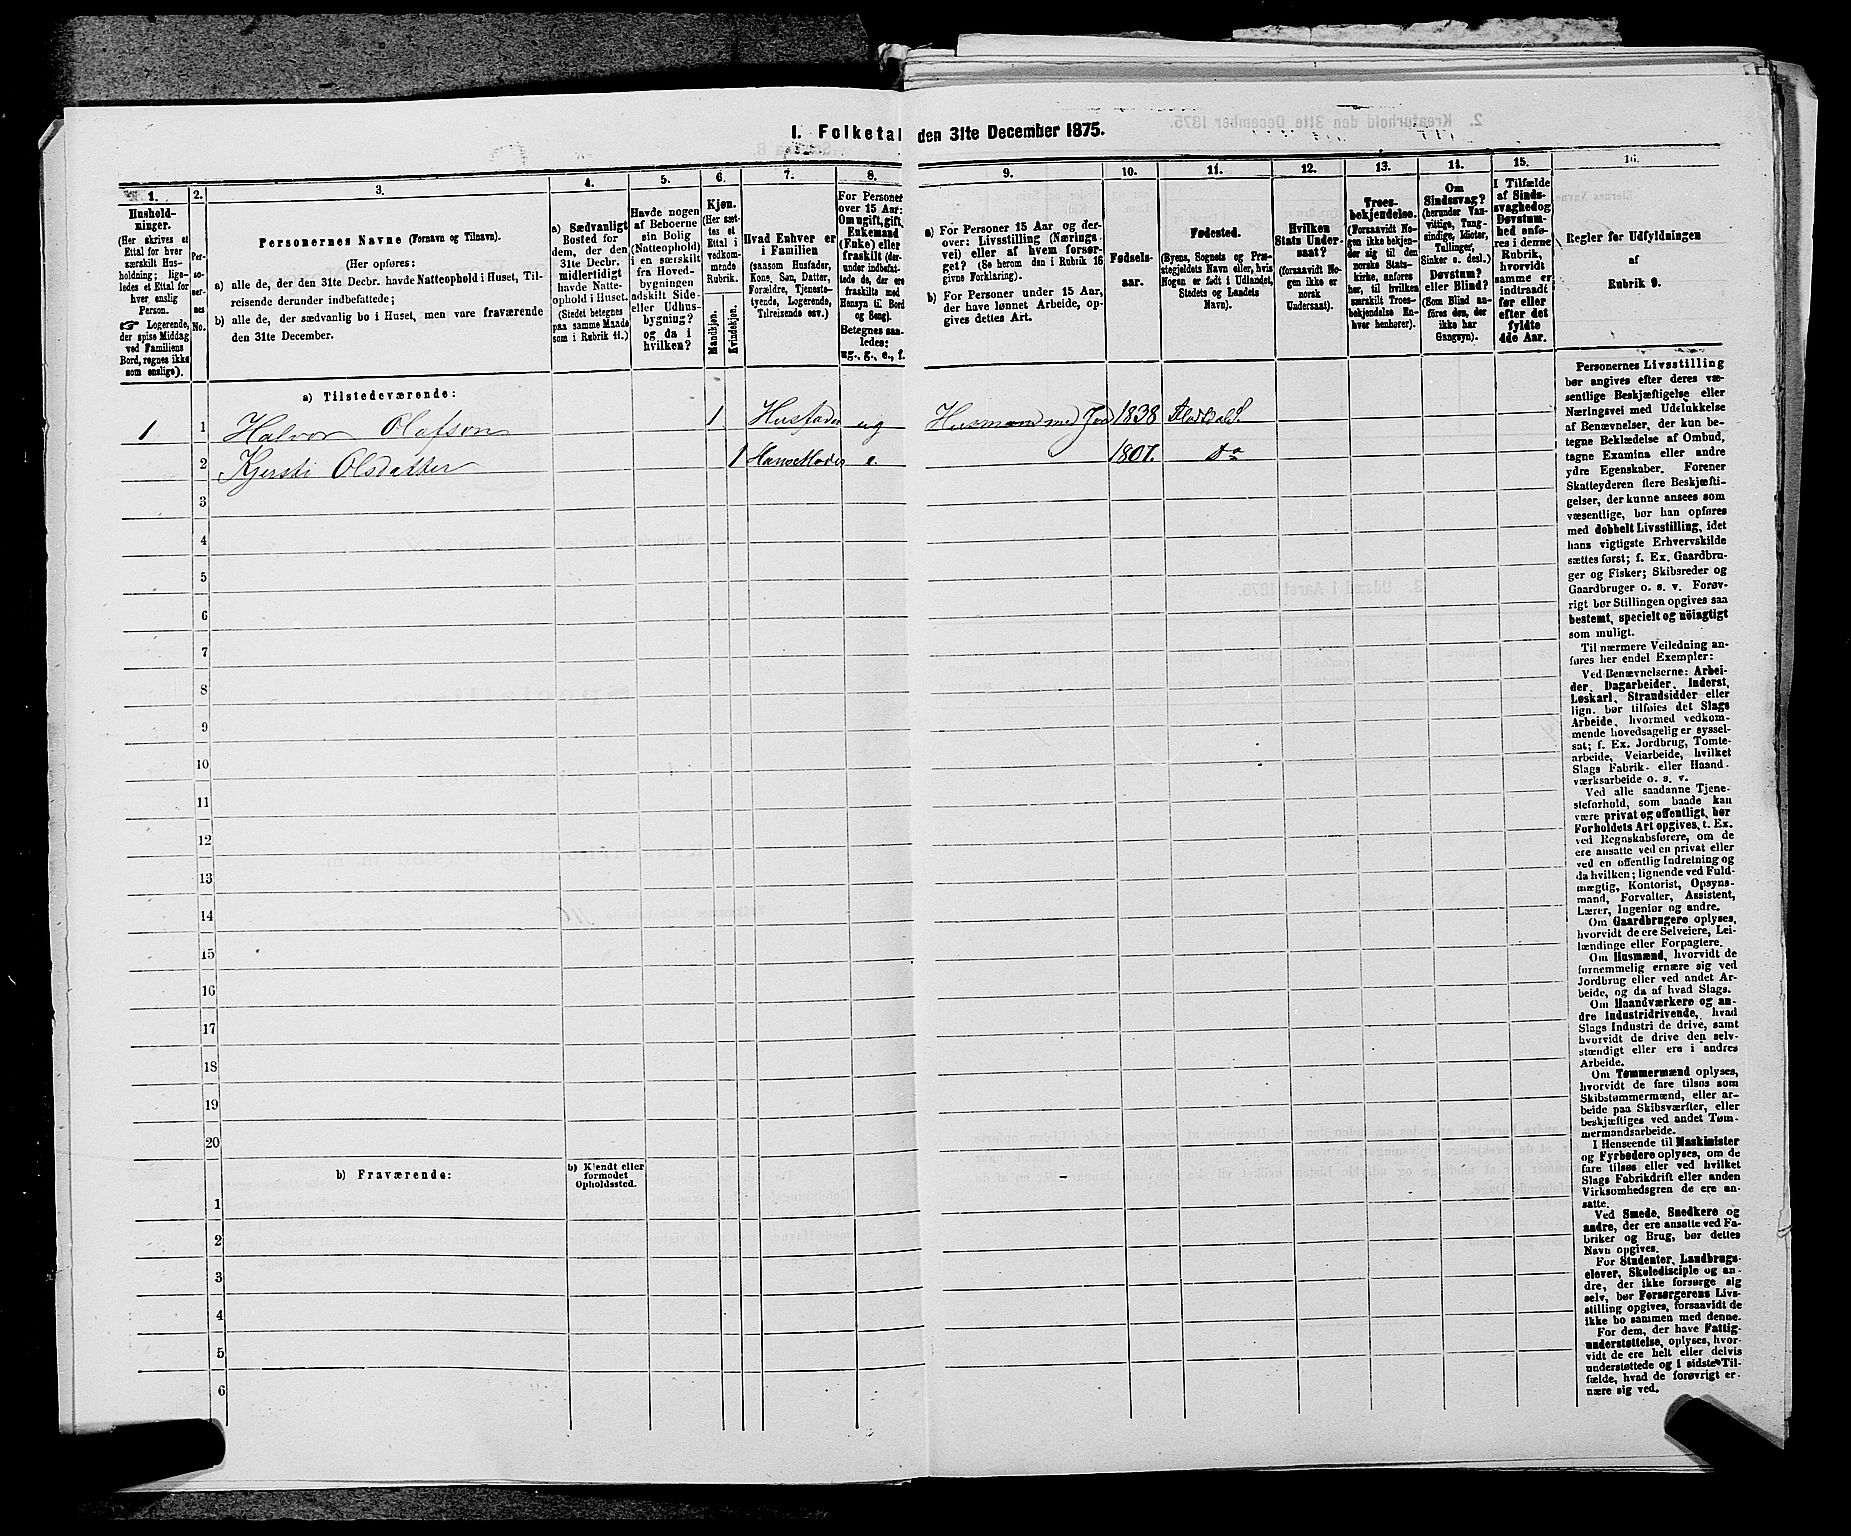 I. Folketal den 31te December 1875.
1.
Hushold-
ninger.
(Her skrives et
Ettal for hver
særskilt Hus-
holdning; lige-
ledes et Ettal for
hver enslig
Person.
☞ Logerende,
der spise Middag
ved Familiens
Bord, regnes ikke
som enslige).
2.
Per-
so-
ner-
nes
No.
3.
Personernes Navne (Fornavn og Tilnavn).
(Her opføres:
a) alle de, der den 31te Decbr. havde Natteophold i Huset, Til-
reisende derunder indbefattede;
b) alle de, der sædvanlig bo i Huset, men vare fraværende
den 31te December.
4.
a) Sædvanligt
Bosted for
dem, der den
31te Decbr.
midlertidigt
havde Natte-
ophold i Huset.
(Stedet betegnes
paa samme Maade
som i Rubrik 11.)
5.
Havde nogen
af Beboerne
sin Bolig
(Natteophold)
i en særskilt
fra Hoved-
bygningen
adskilt Side-
eller Udhus-
bygning?
og da i
hvilken?
6.
Kjøn.
(Her sæt-
tes et
Ettal i
vedkom-
mende
Rubrik.
Mandkjøn.
Kvindekjøn.
7.
Hvad Enhver er
i Familien
(saasom Husfader,
Kone, Søn, Datter,
Forældre, Tjeneste-
tyende, Logerende,
Tilreisende osv.)
8.
For Personer
over 15 Aar:
Om ugift, gift,
Enkemand
(Enke) eller
fraskilt (der-
under indbefat-
tede de, der ere
fraskilte med
Hensyn til Bord
og Seng).
Betegnes saa-
ledes:
ug., g., e., f.
9.
a) For Personer 15 Aar og der-
over: Livsstilling (Nærings-
vei) eller af hvem forsør-
get? (Se herom den i Rubrik 16
givne Forklaring).
b) For Personer under 15 Aar,
der have lønnet Arbeide, op-
gives dettes Art.
10.
Fødsels-
aar.
11.
Fødested.
(Byens, Sognets og Præ-
stegjeldets Navn eller, hvis
Nogen er født i Udlandet,
Stedets og Landets
Navn).
12.
Hvilken
Stats Under-
saat?
(forsaavidt No-
gen ikke er
norsk
Undersaat).
13.
Troes-
bekjendelse.
(Forsaavidt No-
gen ikke bekjen-
der sig til den
norske Stats-
kirke, anføres
her, til hvilken
særskilt Troes-
bekjendelse En-
hver henhører).
14.
Om
Sindssvag?
(herunder Van-
vittige, Tung-
sindige, Idioter,
Tullinger,
Sinker o. desl.)
Døvstum?
eller Blind?
(Som Blind an-
føres den, der
ikke har
Gangsyn).
15.
I Tilfælde
af Sinds-
svaghed og
Døvstum-
hed anfø-
res i denne
Rubrik,
hvorvidt
samme er
indtraadt
før eller
efter det
fyldte
4de Aar.
16.
Regler for Udfyldningen
af
Rubrik 9.
a) Tilstedeværende:
1 1 Halvor Olafsen 1 Husfader ug Husmand med Jord 1838
2 Kjersti Olsdatter 1 e. 1807. Do
3
4
5
6
7
8
9
10
11
12
13
14
15
16
17
18
19
20
b) Fraværende:
b) Kjendt eller
formodet
Opholdssted.
1
2
3
4
5
6
Personernes Livsstilling
bør angives efter deres væ-
sentlige Beskjæftigelse eller
Næringsvei med Udelukkelse
af Benævnelser, der kun be-
tegne Beklædelse af Ombud,
tagne Examina eller andre
ydre Egenskaber. Forener
Skatteyderen flere Beskjæfti-
gelser, der kunne ansees som
væsentlige, bør han opføres
med dobbelt Livsstilling, idet
hans vigtigste Erhvervskilde
sættes først; f. Ex. Gaardbru-
ger og Fisker; Skibsreder og
Gaardbruger o. s. v. Forøv-
rigt bør Stillingen opgives saa
bestemt, specielt og nöiagtigt
som muligt.
Til nærmere Veiledning an-
føres her endel Exempler:
Ved Benævnelserne: Arbei-
der, Dagarbeider, Inderst,
Løskarl, Strandsidder eller
lign. bør tilføies det Slags
Arbeide, hvormed vedkom-
mende hovedsagelig er syssel-
sat; f. Ex. Jordbrug, Tomte-
arbeide, Veiarbeide, hvilket
Slags Fabrik- eller Haand-
værksarbeide o. s. v.
Ved alle saadanne Tjene-
steforhold, som baade kan
være privat og offentligt, bør
Forholdets Art opgives, t. Ex.
ved Regnskabsførere, om de
ere ansatte ved en privat eller
ved en offentlig Indretning og
da hvilken; lignende ved Fuld-
mægtig, Kontorist, Opsyns-
mand, Forvalter, Assistent,
Lærer, Ingeniør og andre.
Om Gaardbrugere oplyses,
hvorvidt de ere Selveiere, Lei-
lændinge eller Forpagtere.
Om Husmænd, hvorvidt de
fornemmelig ernære sig ved
Jordbrug eller ved andet Ar-
beide, og da af hvad Slags.
Om Haandværkere og an-
dre Industridrivende, hvad
Slags Industri de drive, samt
hvorvidt de drive den selv-
stændigt eller ere i andres
Arbeide.
Om Tømmermænd oplyses,
hvorvidt de fare tilsøs som
Skibstømmermænd, eller ar-
beide paa Skibsværfter, eller
beskjæftiges ved andet Tøm-
mermandsarbeide.
I Henseende til Maskinister
og Fyrbødere oplyses, om de
fare tilsøs eller ved hvilket
Slags Fabrikdrift eller anden
Virksomhedsgren de ere an-
satte.
Ved Smede, Snedkere og
andre, der ere ansatte ved Fa-
briker og Brug, bør dettes
Navn opgives.
For Studenter, Landbrugs-
elever, Skoledisciple og an-
dre, der ikke forsørge sig
selv, bør Forsørgerens Livs-
stilling opgives, forsaavidt de
ikke bo sammen med denne.
For dem, der have Fattig-
understøttelse, oplyses, hvor-
vidt de ere helt eller delvis
understøttede og i sidste Til-
fælde, hvad de forøvrigt er-
nære sig ved.